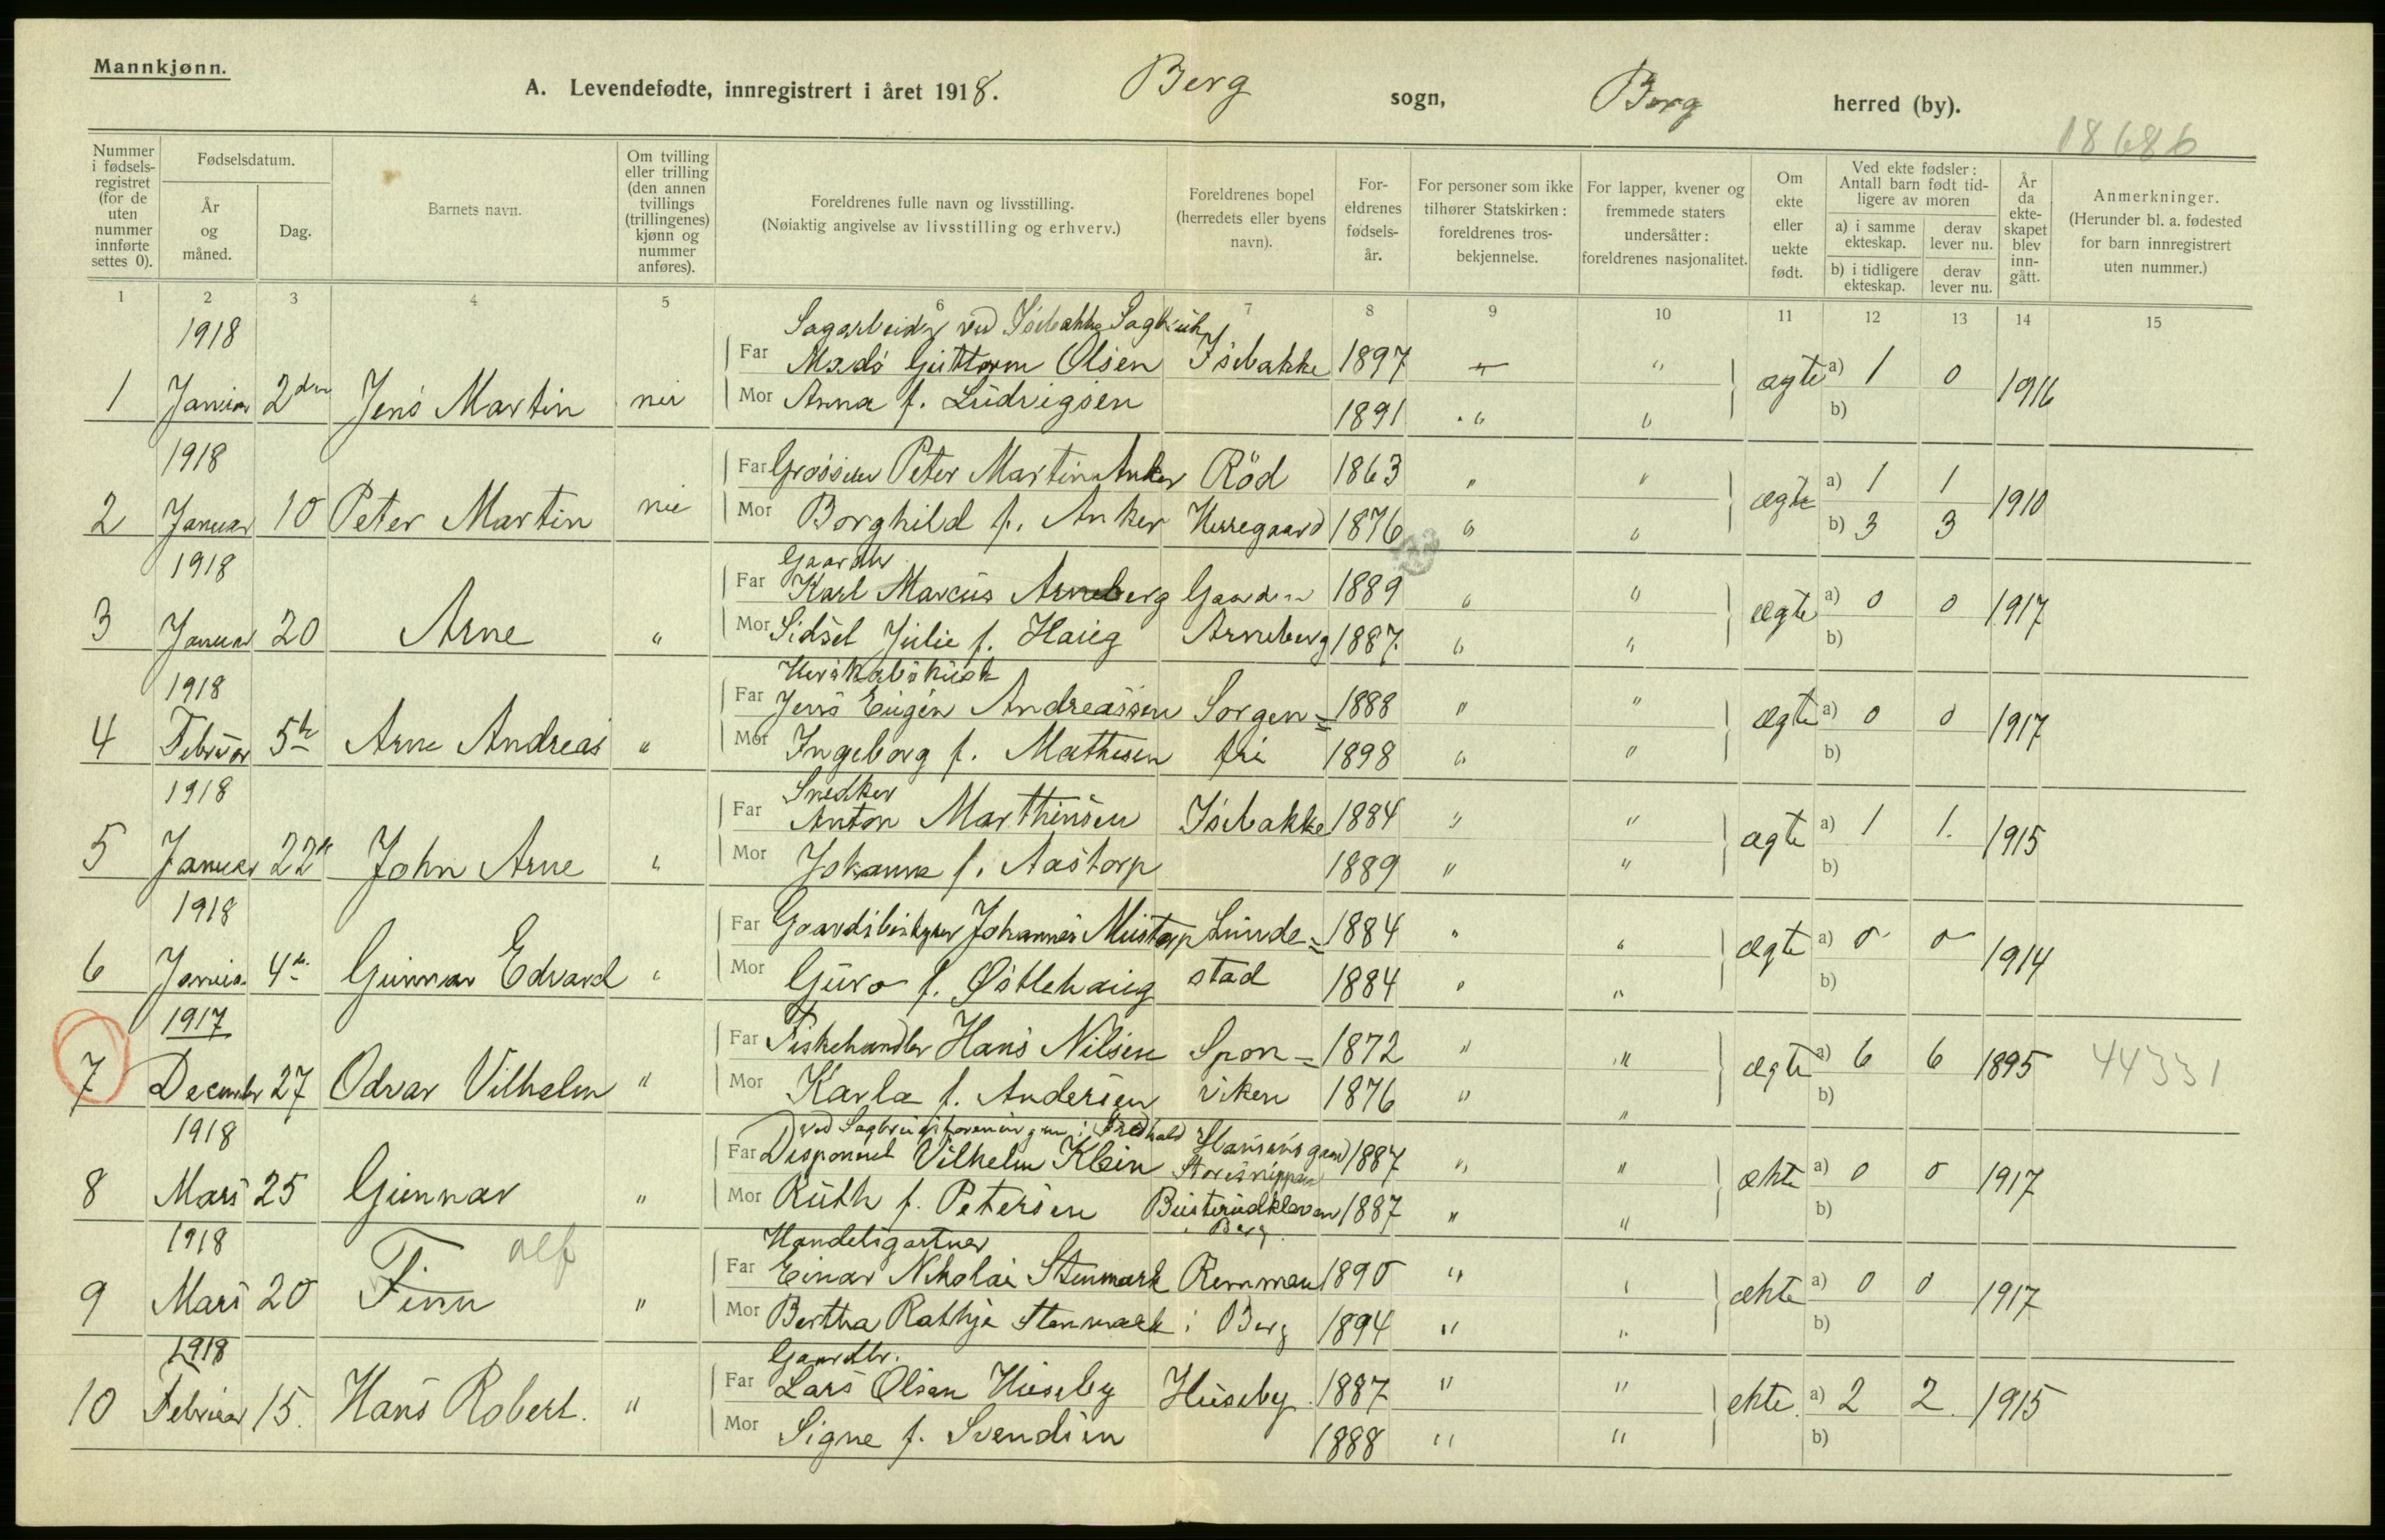 Mannkjønn.
A. Levendefødte, innregistrert i året 1918. Berg sogn, Berg herred (by).
18686
Nummer i fødselsregistret (for de uten nummer innførte settes 0).
Fødselsdatum.
År og måned.
Dag.
Barnets navn.
Om tvilling eller trilling (den annen tvillings (trillingenes) kjønn og nummer anføres).
Foreldrenes fulle navn og livsstilling.
(Nøiaktig angivelse av livsstilling og erhverv.)
Foreldrenes bopel (herredets eller byens navn).
Foreldrenes fødselsår.
For personer som ikke tilhører Statskirken: foreldrenes trosbekjennelse.
For lapper, kvener og fremmede staters undersåtter: foreldrenes nasjonalitet.
Om ekte eller uekte født.
Ved ekte fødsler: Antall barn født tidligere av moren
a) i samme ekteskap. derav lever nu.
b) i tidligere ekteskap. derav lever nu.
År da ekteskapet blev inngått.
Anmerkninger.
(Herunder bl. a. fødested for barn innregistrert uten nummer.)
1 2 3 4 5 6 7 8 9 10 11 12 13 14 15
1918 Sagarbeider ved Isebakke Sagbruk
Far Mads Guttorm Olsen Isebakke 1897 " "
1 Januar 2den Jens Martin nei Mor Anna f. Ludvigsen 1891 " " ægte a) 1 0 1916
b)
1918 Far Grosserer Peter Martin Anker Röd 1863 " "
2 Januar 10 Peter Martin nei Mor Borghild f. Anker Herregaard 1876 " " ægte a) 1 1 1910
b) 3 3
1918 Gaardbr
Far Karl Marcus Arneberg Gaarden 1889 " "
3 Januar 20 Arne " Mor Sidsel Julie f. Haug Arneberg 1887. " " ægte a) 0 0 1917
b)
1918 Herskabskusk
Far Jens Eugen Andreassen Sorgen= 1888 " "
4 Februar 5te Arne Andreas " Mor Ingeborg f. Mathisen fri 1898 " " ægte a) 0 0 1917
b)
1918 Snedker
Far Anton Marthinsen Isebakke 1884 " "
5 Januar 22de John Arne " Mor Johanna f. Aastorp 1889 " " ægte a) 1 1. 1915
b)
1918 Far Gaardsbestyrer Johannes Mustorp Lunde= 1884 " "
6 Januar 4de Gunnar Edvard " Mor Guro f. Østlehaug stad 1884 " " ægte a) 0 0 1914
b)
1917 Far Fiskehandler Hans Nilsen Spon= 1872 " "
7 December 27 Odvar Vilhelm " Mor Karla f. Andersen viken 1876 " " ægte a) 6 6 1895 44331
b)
1918 ved Sagbrugsforeningen i Fredhald
Far Disponent Vilhelm Klein Hansensgaard 1887 " "
8 Mars 25 Gunnar " Mor Ruth f. Petersen Busterudkleven i Berg 1887 " " ekte a) 0 0 1917
b)
1918 alf Handelsgartner
Far Einar Nikolai Stenmark Remmen 1890 " "
9 Mars 20 Finn " Mor Bertha Rathje Stenmark i Berg 1894 " " ekte a) 0 0 1917
b)
1918 Gaardbr.
Far Lars Olsen Huseby Huseby 1887 " "
10 Februar 15. Hans Robert. " Mor Signe f. Svendsen 1888 " " ekte. a) 2 2. 1915
b)